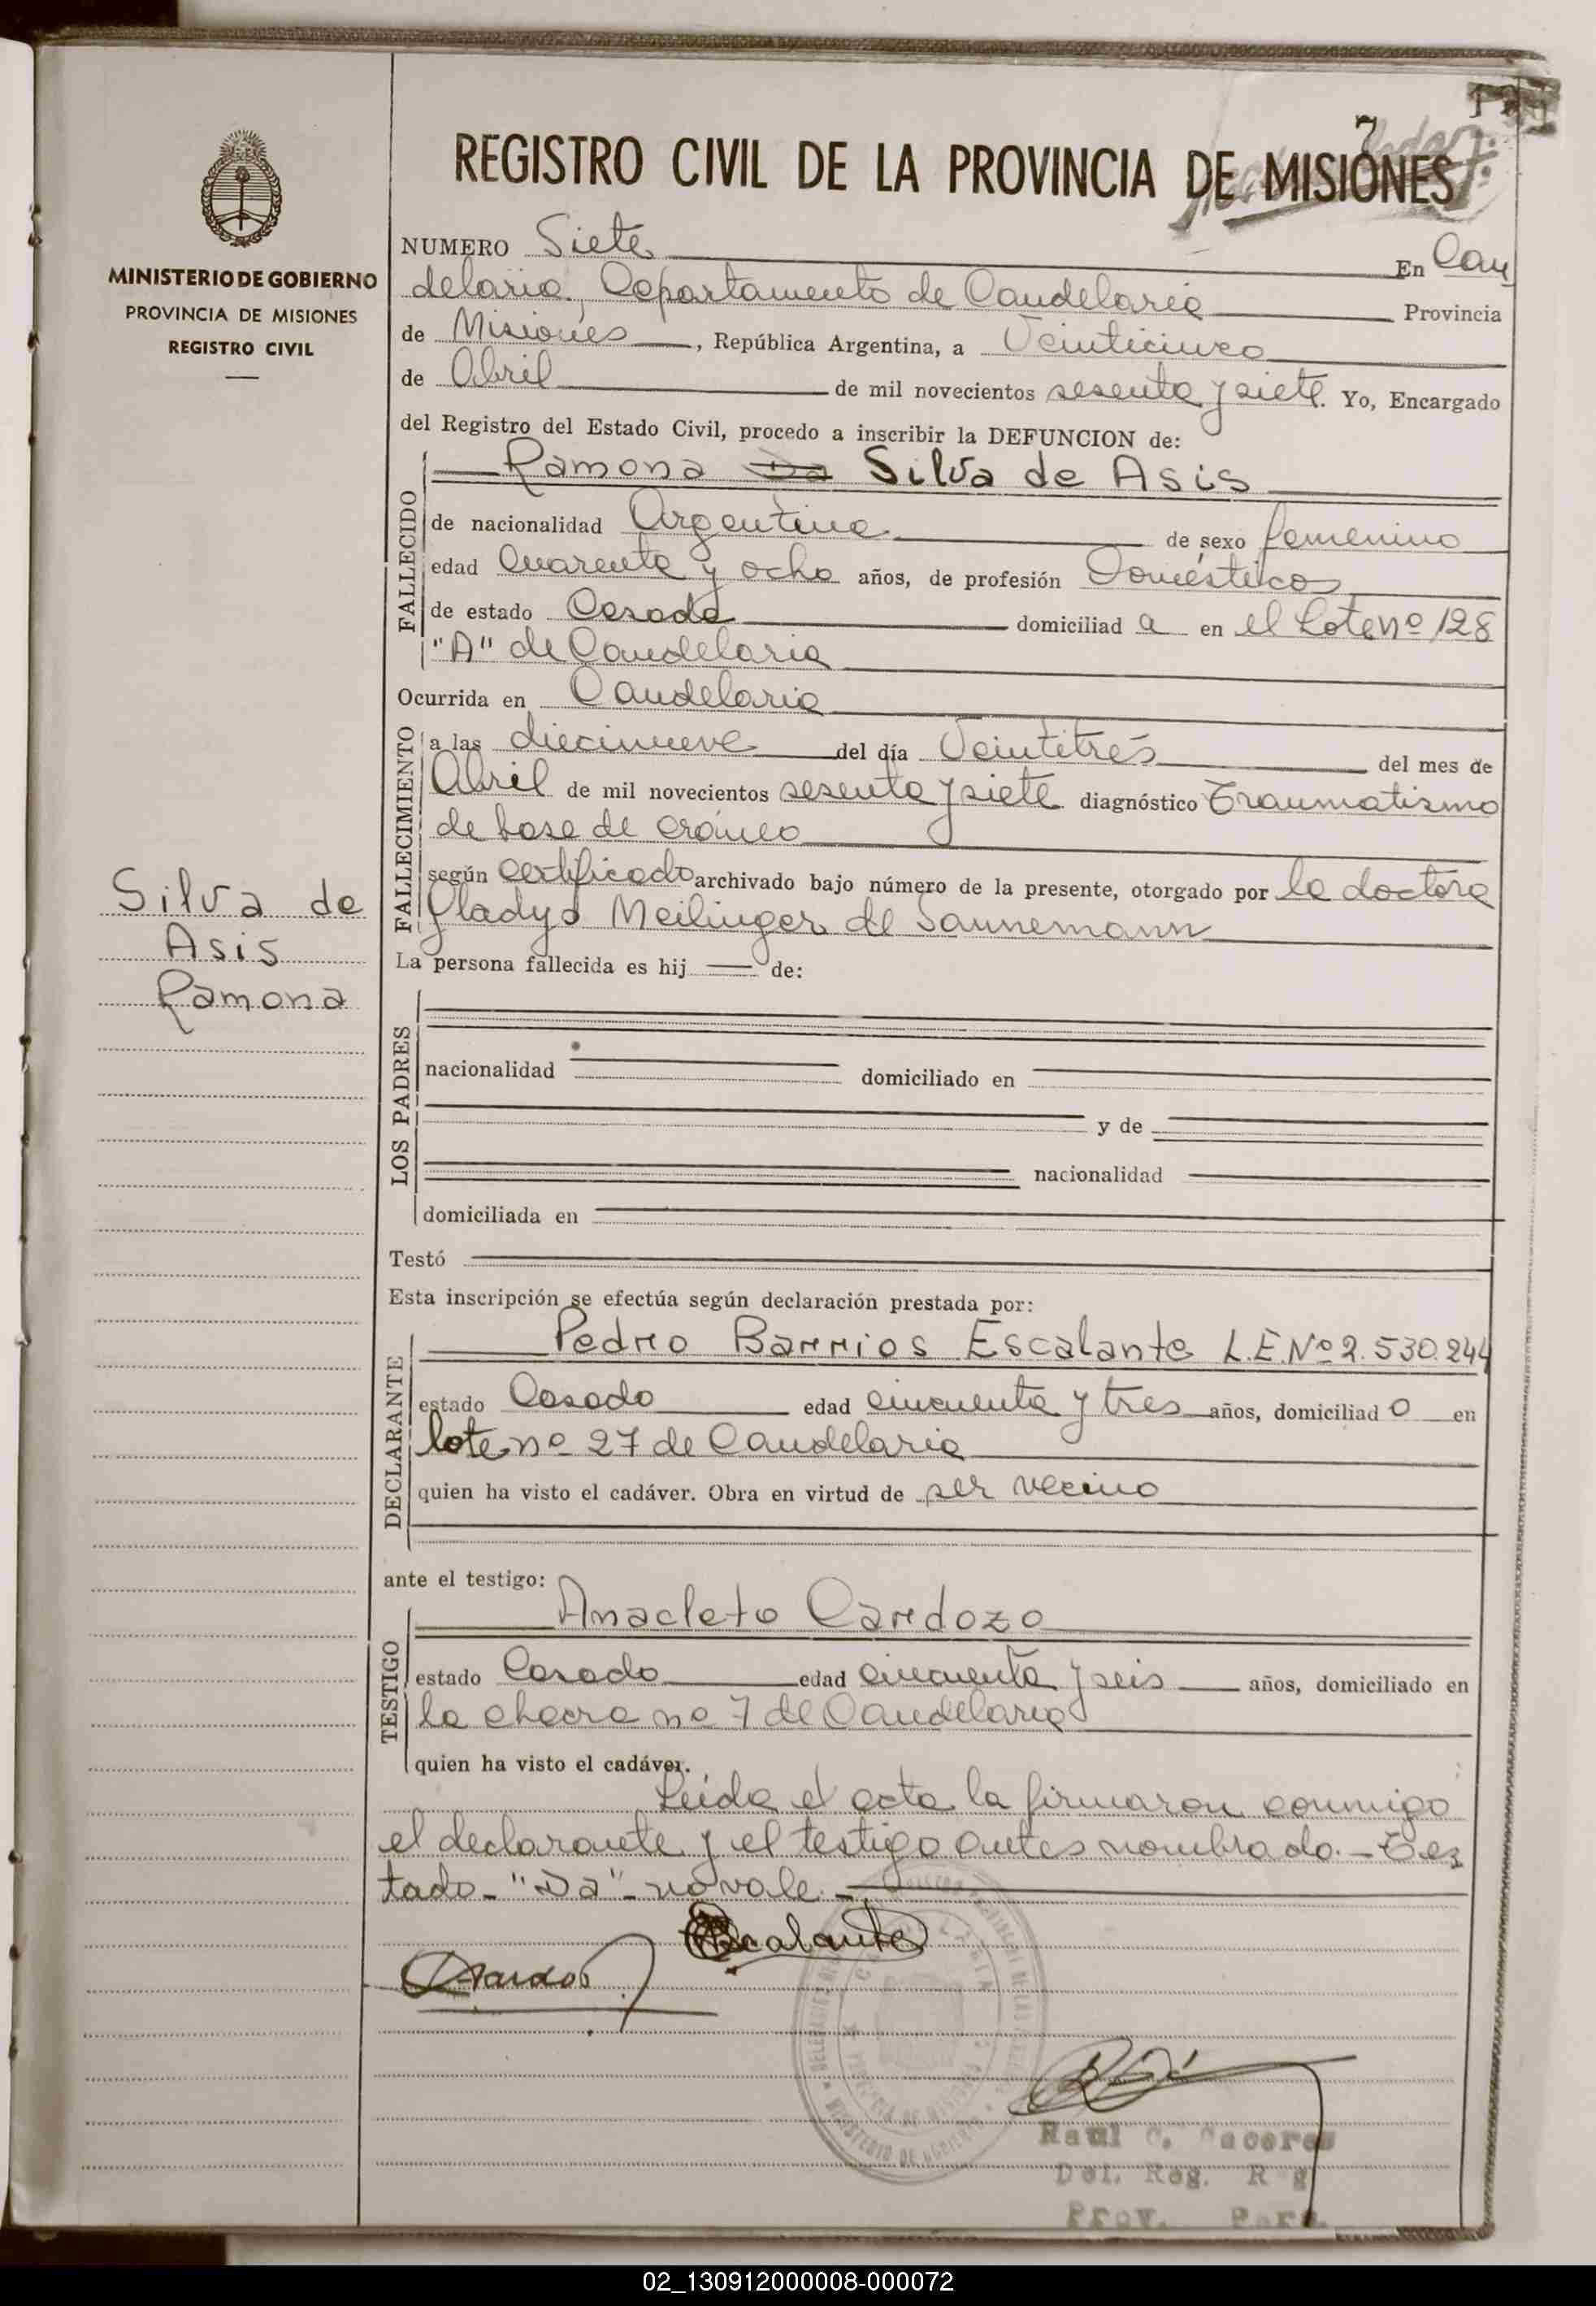 7
REGISTRO CIVIL DE LA PROVINCIA DE MISIONES
MINISTERIO DE GOBIERNO
PROVINCIA DE MISIONES
REGISTRO CIVIL
NUMERO Siete En Can
delaria, Departamento de Candelaria Provincia
de Misiones, República Argentina, a Veinticinco
de Abril de mil novecientos sesenta y siete. Yo, Encargado
del Registro del Estado Civil, procedo a inscribir la DEFUNCION de:
FALLECIDO
Ramona Da Silva de Asis
de nacionalidad Argentina de sexo femenino
edad Cuarenta y ocho años, de profesión Domésticos
de estado Casada domiciliad a en el Lote nº 128
"A" de Candelaria
Ocurrida en Candelaria
FALLECIMIENTO
a las diecinueve del día Veintitrés del mes de
Abril de mil novecientos sesenta y siete diagnóstico Traumatismo
de base de cráneo
según Certificado archivado bajo número de la presente, otorgado por la doctora
Gladys Meilinger de Sannemann
Silva de
Asis
Ramona
La persona fallecida es hij de:
LOS PADRES
nacionalidad domiciliado en
y de
nacionalidad
domiciliada en
Testó
Esta inscripción se efectúa según declaración prestada por:
DECLARANTE
Pedro Barrios Escalante L.E.Nº 2.530.244
estado Casado edad cincuenta y tres años, domiciliad o en
lote nº 27 de Candelaria
quien ha visto el cadáver. Obra en virtud de ser vecino
ante el testigo:
TESTIGO
Anacleto Cardozo
estado Casado edad cincuenta y seis años, domiciliado en
la chacra nº 7 de Candelaria
quien ha visto el cadáver.
Leida el acta la firmaron conmigo
el declarante y el testigo antes nombrado.- Tes
tado- "Da"- no vale.-
Escalante
Cardozo
Raul C. Caceres
Del. Reg. R g
Prov. Pers.
02_130912000008-000072